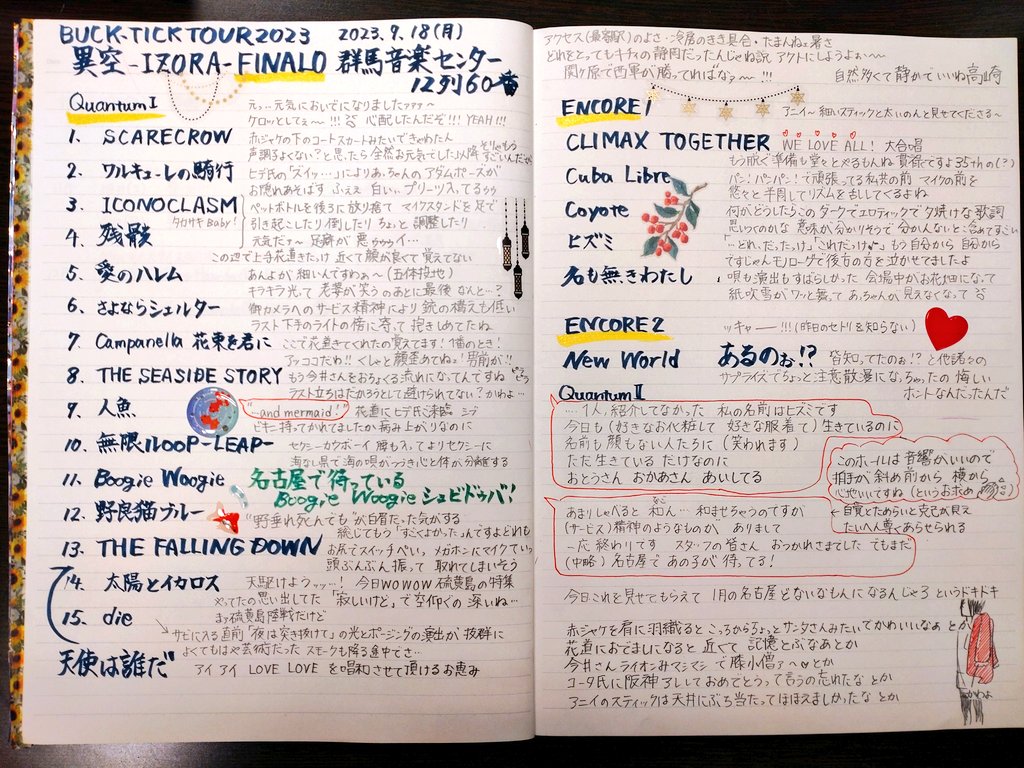 BUCK-TICK TOUR 2023 2023.9.18(月)
異空-IZORA-FINALO 群馬音楽センター
12列60番
Quantum I
えっ…元気においでになりましたァァァ〜
ケロッとしてぇ〜!!! 心配したんだぞ!!! YEAH!!!
1. SCARECROW
赤ジャケの下のコートスカートみたいできゃわたん
2. ワルキューレの騎行
3. ICONOCLASM
タカサキBaby!
ペットボトルを後ろに放り捨て マイクスタンドを足で
引き起こしたり倒したり ちょっと調整したり
4. 残骸
この辺で上手花道きたっけ 近くて顔が良くて覚えてない
5. 愛のハレム
あんよが細いんですわぁ〜(五体投地)
キラキラ光って 老婆が笑うのあとに最後 なんと…?
6. さよならシェルター
御カメラへのサービス精神により 銃の構えも低い
ラスト下手のライトの傍に寄って 抱きしめてたね
7. Campanella 花束を君に
ここで花道きてくれたの覚えてます!1個のとき!
8. THE SEASIDE STORY
もう今井さんをおちょくる流れになってんですね
ラスト立ちはだかろうとして避けられてない?かわよ…
9. 人魚
"…and mermaid!"
花道にヒデ氏ご来臨
10. 無限LOOP-LEAP-
海なし県で海の唄がつづき心と体が分離する
11. Boogie Woogie
名古屋で待っている
Boogie Woogie シュビドゥバ!
12. 野良猫ブルー
"野垂れ死んでも"が白眉だった気がする
総じてもう「すごくよかった」んですよどれも
13. THE FALLING DOWN
お尻でスイッチぺい。メガホンにマイクていっ
頭ぶんぶん振って 取れてしまいそう
14. 太陽とイカロス
天駆けようッッ…! 今日WOWOW 硫黄島の特集
やってたの思い出してた「寂しいけど」で空仰ぐの 深いね…
15. die
まァ硫黄島陸戦だけど
サビに入る直前「夜は突き抜けて」の光とポージングの演出が 抜群に
よくてもはや芸術だった スモークも降る途中でさ…
天使は誰だ
アイアイ LOVE LOVE を唱和させて頂けるお恵み
アクセス(最寄駅)のよさ・冷房のきき具合・たまんねェ暑さ
どれをとってもキティの静岡だったんじゃね説 アクトにしようよぉ〜〜
関ヶ原で西軍が勝ってればなァ〜!!!
自然多くて静かでいいね高崎
ENCORE 1
アニイ〜細いスティックと太いのんと見せてくださる〜
CLIMAX TOGETHER WE LOVE ALL! 大合唱
Cuba Libre
パン!パンパン!で頑張ってる私共の前 マイクの前を
悠々と半周してリズムを出してくるよね
Coyote
何がどうしたらこのダークでエロティックで夕焼けな歌詞
ヒズミ
「…どれ、だったっけ」「これだっけ」もう自分から 自分から
ですしゃんモノローグで後方の方を泣かせてましたよ
名も無きわたし
唄も演出もすばらしかった 会場中がお花畑になって
紙吹雪がワッと舞って あっちゃんが見えなくなって
ENCORE 2
ッキャー!!!(昨日のセトリを知らない)
New World
あるのぉ!?
皆知ってたのぉ!?と代読の
サプライズでちょっと注意散漫になっちゃったの 悔しい
ホントなんだったんだ
Quantum II
…1人、紹介してなかった 私の名前はヒズミです
今日も(好きなお化粧して 好きな服着て)生きているのに
名前も顔もない人たちに(笑われます)
ただ生きている だけなのに
おとうさん おかあさん あいしてる
このホールは音響がいいので
拍手が斜め前から 横から
心地いいですね(というお求め)
自覚とためらいと克己が見え
たいへん尊くあらせられる
あまりしゃべると 和ん… 和ませちゃうのですが
(サービス)精神のようなものが、ありまして
一応 終わりです スタッフの皆さん おつかれさまでした でもまだ
(中略)名古屋で あの子が 待ってる!
今日これを見せてもらえて 1月の名古屋 どないなもんになるんじゃろ というドキドキ
赤ジャケを肩に羽織ると こっからちょっとサンタさんみたいでかわいいなぁ とか
花道におでましになると 近くて 記憶とぶなあとか
今井さん ライオンみマシマシで 藤小僧ァ〜♡とか
コータ氏に阪神アレしておめでとうって言うの忘れた とか
アニイのスティックは天井にぶち当たってほほえましかったな とか
かわよ